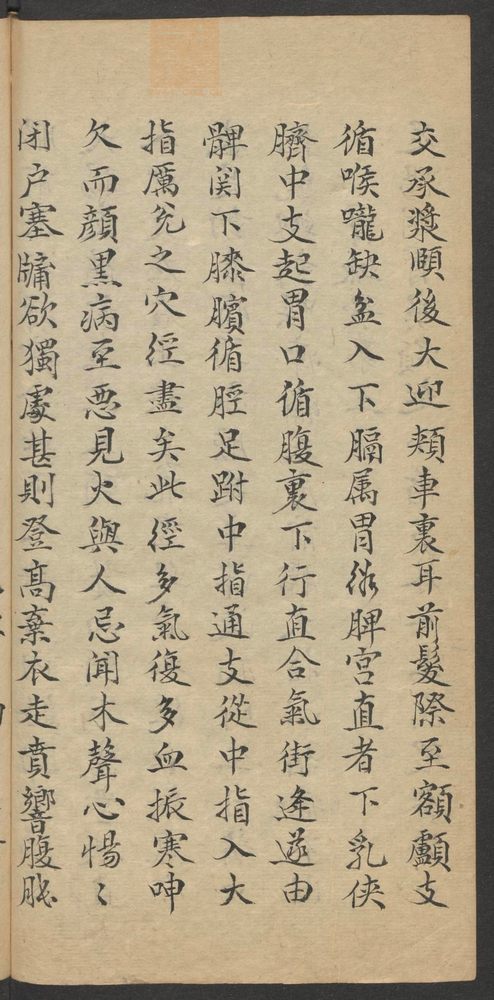 交承漿頤後大迎頰車裏耳前髮際至額顱支
循喉嚨缺盆入下膈属胃絡脾宮直者下乳俠
臍中支起胃口循腹裏下行直合氣街逢遂由
髀関下膝臏循脛足跗中指通支從中指入大
指厲兊之穴徑盡矣此徑多氣復多血振寒呻
欠而顔黒病至惡見火與人忌聞木聲心惕〻
闭戸塞牗欲獨處甚則登髙棄衣走賁響腹脹